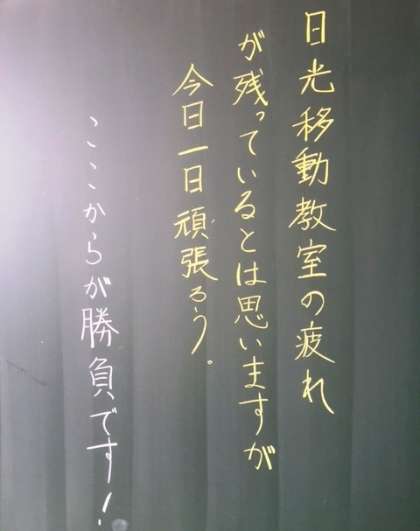 日光移動教室の疲れ
が残っているとは思いますが
今日一日頑張ろう。
ここからが勝負です！